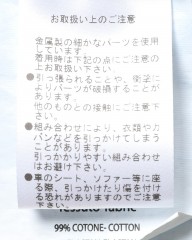 お取扱い上のご注意
金属製の細かなパーツを使用
しています。
着用時は下記の点にご注意の
上お取扱い下さい。
●引っ張られることや、衝撃に
よりパーツが破損することが
あります。
他のものとの接触にご注意下
さい。
●組み合わせにより、衣類やカ
バンなどを引っかけてしまう
ことがあります。
引っかかりやすい組み合わせ
はお避け下さい。
●車のシート、ソファー等に座
る際、引っかけたり傷を付け
る恐れがありますのでご注意
下さい。
Tessuto-fabric
99% COTONE- COTTON